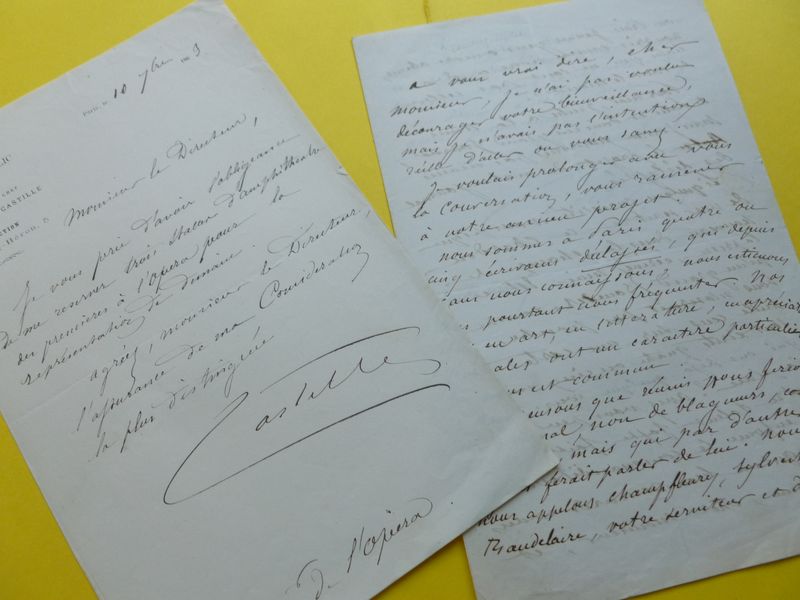 LIC
CASTILLE
CTION
Paris, le 10 7bre 1883
Monsieur le Directeur,
Je vous prie d'avoir l'obligeance
de me réserver trois stalles d'amphithéatre
des premières à l'Opéra pour la
représentation de demain.
agréez, monsieur le Directeur,
l'assurance de ma Considération
la plus distinguée
Castille
De l'Opéra.
a vous vrai dire, cher
monsieur, je n'ai pas voulu
décourager votre bienveillance,
mais je n'avais pas l'intention
réelle d'aller où vous savez.
Je voulais prolonger avec vous
la conversation, vous ramener
à notre ancien projet.
nous sommes à Paris quatre ou
cinq écrivains délassés, qui depuis
ans nous connaissons, nous estimons
pourtant nous fréquenter. Nos
en art, en littérature, en
ales ont un caractère particulier
est commun.
ensons que réunis nous ferions
nal, non de blagueurs,
mais qui par d'autre
ferait parler de lui. nous
nous appelons champfleury, Sylvest
Baudelaire, votre serviteur et